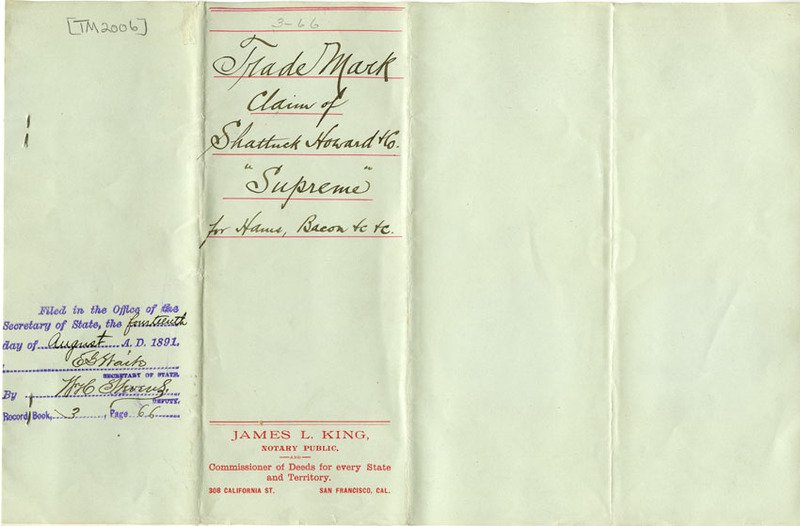 [TM2006]
3-66
Trade Mark
Claim of
Shattuck Howard & Co.
"Supreme"
for Hams, Bacon &c &c.
Filed in the Office of the
Secretary of State, the fourteenth
day of August A. D. 1891.
E G Waite
SECRETARY OF STATE.
By W H C Stevens,
DEPUTY.
Record Book, 3, Page 66
JAMES L. KING,
NOTARY PUBLIC,
AND
Commissioner of Deeds for every State
and Territory.
308 CALIFORNIA ST. SAN FRANCISCO, CAL.